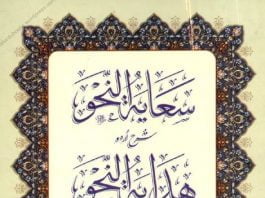 سعایۃ النحو
شرح اردو
ھدایۃ النحو